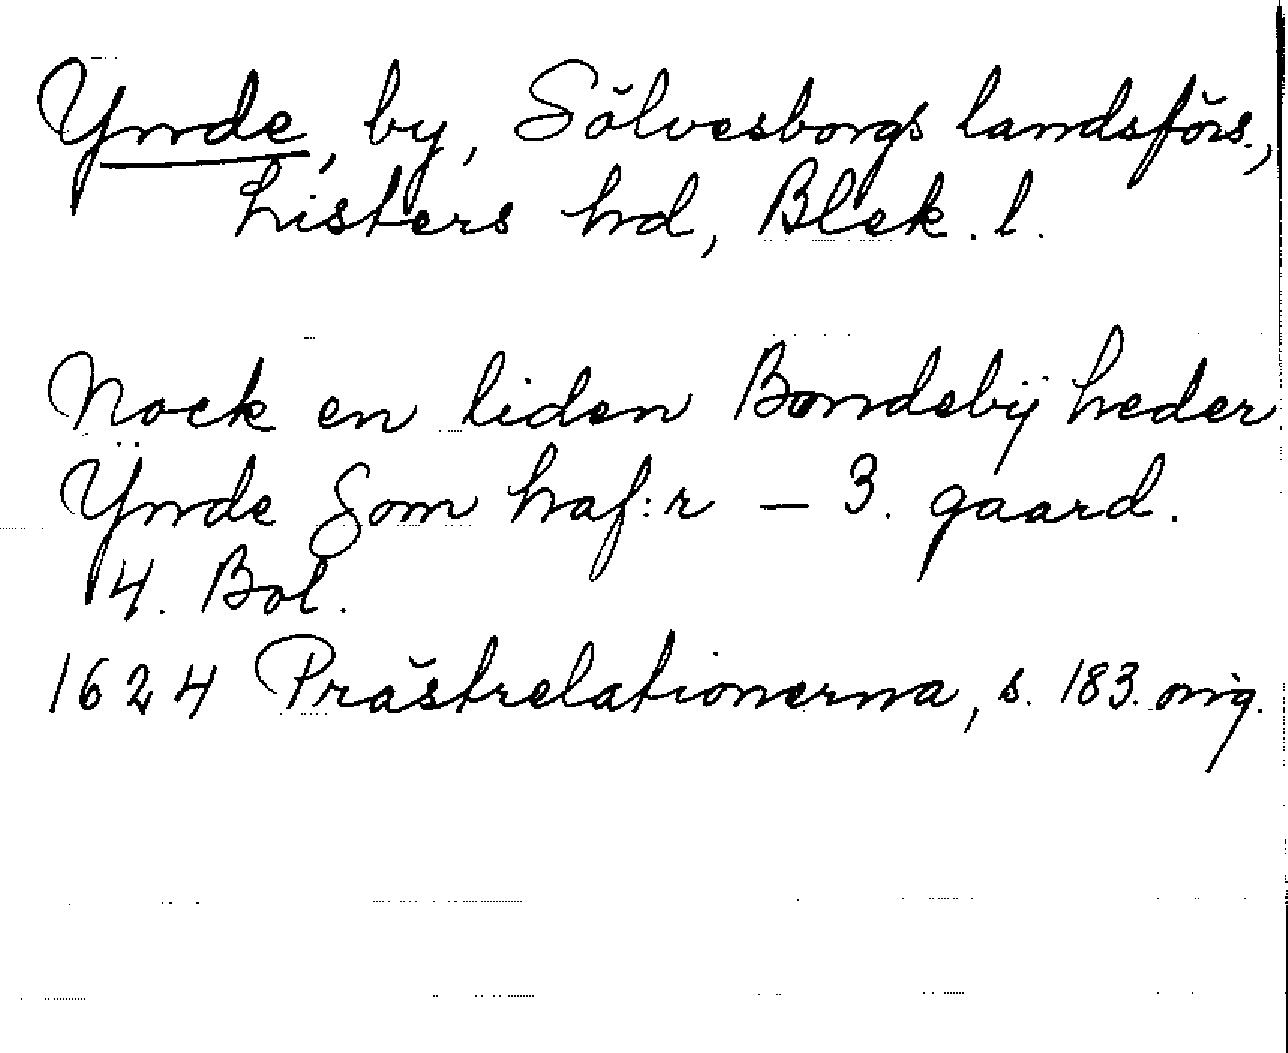 Ynde, by, Sölvesborgs landsförs.,
Listers hd, Blek. l.
Nock en liden Bondebÿ heder
Ÿnde Som haf:r – 3. gaard.
4. Bol.
1624 Prästrelationerna, s. 183. orig.